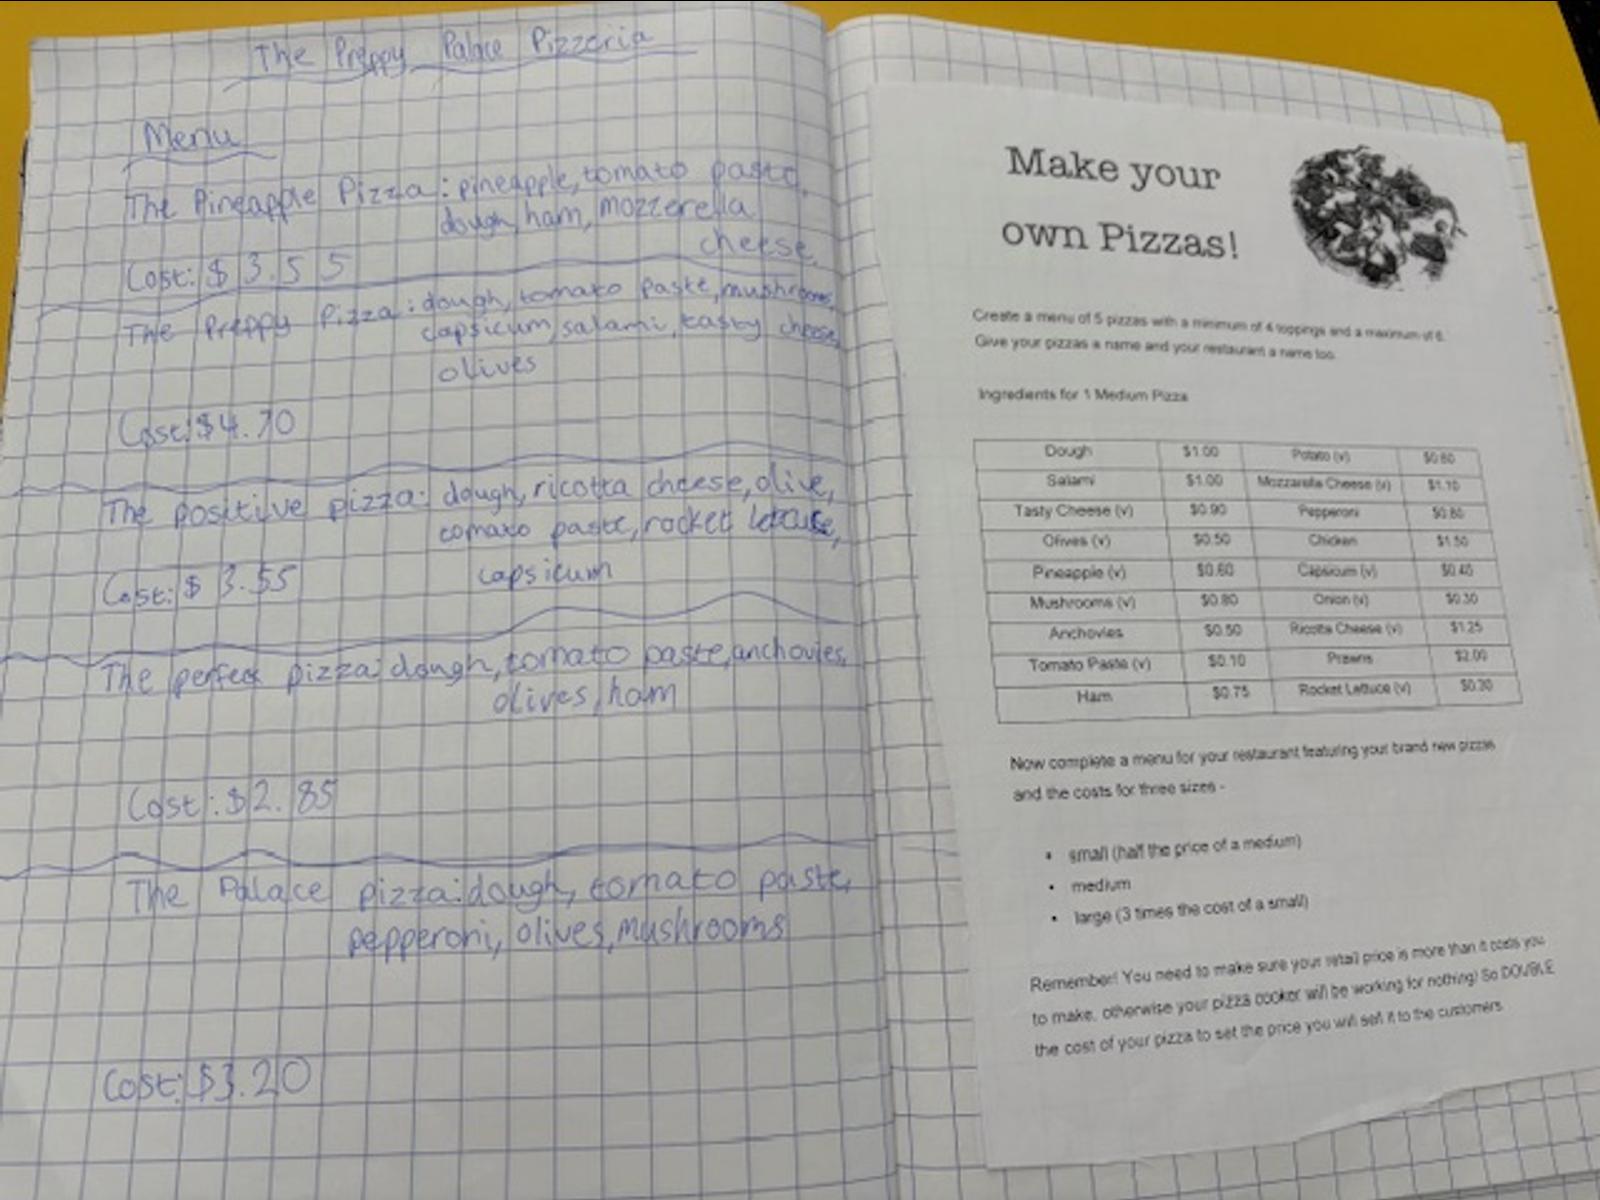 The Preppy Palace Pizzeria
Menu
The Pineapple Pizza: pineapple, tomato paste,
dough, ham, mozzerella
cheese.
Cost: $3.55
The Preppy Pizza: dough, tomato paste, mushrooms,
capsicum, salami, tasty cheese,
olives
Cost: $4.70
The positive pizza: dough, ricotta cheese, olive,
tomato paste, rocket lettuce,
capsicum
Cost: $3.55
The perfect pizza: dough, tomato paste, anchovies,
olives, ham
Cost: $2.85
The Palace pizza: dough, tomato paste,
pepperoni, olives, mushrooms
Cost: $3.20
Make your
own Pizzas!
Create a menu of 5 pizzas with a minimum of 4 toppings and a maximum of 6.
Give your pizzas a name and your restaurant a name too.
Ingredients for 1 Medium Pizza
Dough $1.00 Potato (v) $0.60
Salami $1.00 Mozzarella Cheese (v) $1.10
Tasty Cheese (v) $0.90 Pepperoni $0.80
Olives (v) $0.50 Chicken $1.50
Pineapple (v) $0.60 Capsicum (v) $0.40
Mushrooms (v) $0.80 Onion (v) $0.30
Anchovies $0.50 Ricotta Cheese (v) $1.25
Tomato Paste (v) $0.10 Prawns $2.00
Ham $0.75 Rocket Lettuce (v) $0.30
Now complete a menu for your restaurant featuring your brand new pizzas
and the costs for three sizes -
• small (half the price of a medium)
• medium
• large (3 times the cost of a small)
Remember! You need to make sure your retail price is more than it costs you
to make, otherwise your pizza cooker will be working for nothing! So DOUBLE
the cost of your pizza to set the price you will sell it to the customers.